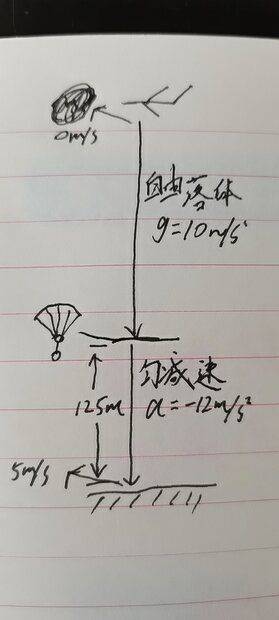 0m/s
自由落体
g=10m/s²
匀减速
125m
a=-12m/s²
5m/s